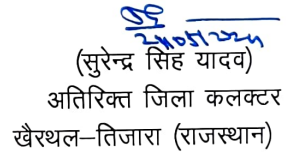 (सुरेन्द्र सिंह यादव)
अतिरिक्त जिला कलक्टर
खैरथल–तिजारा (राजस्थान)